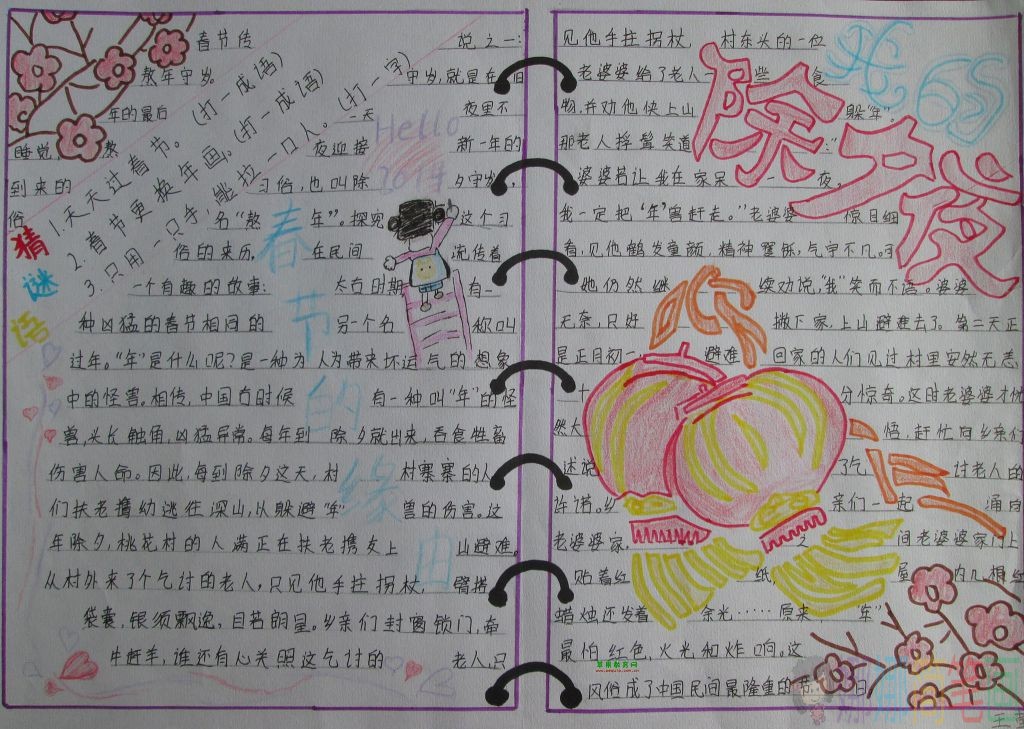 春节传说之一:
熬年守岁
守岁,就是在旧
年的最后一天夜里不
睡觉,熬夜迎接新一年的
到来的习俗,也叫除夕守岁,
俗名“熬年”。探究这个习
俗的来历,在民间流传着
一个有趣的故事: 太古时期 有一
种凶猛的春节相同的另一个名称叫
过年。“年”是什么呢?是一种为人为带来坏运气的想象
中的怪害。相传,中国古时候有一种叫“年”的怪
兽,头长触角,凶猛异常。每年到除夕就出来,吞食牲畜
伤害人命。因此,每到除夕这天,村村寨寨的人
们扶老携幼逃往深山,从躲避“年”兽的伤害。这
年除夕,桃花村的人满正在扶老携友上山避难。
从村外来了个乞讨的老人,只见他手拄拐杖,臂搭
袋囊,银须飘逸,目若朗星。乡亲们封窗锁门,牵
牛赶羊,谁还有心关照这乞讨的老人。只
猜谜语
1.天天过春节。(打一成语)
2.春节更换年画。(打一成语)
3.只用一只手,能拉一口人。(打一字)
Hello
2014
春节的缘由
见他手拄拐杖, 村东头的一位
老婆婆给了老人一些食
物,并劝他快上山躲“年”。
那老人捋髯笑道:“
婆婆若让我在家呆一夜,
我一定把‘年’兽赶走。”老婆婆惊目细
看,见他鹤发童颜,精神矍铄,气宇不凡。可
她仍然继续劝说,“我”笑而不语。婆婆
无奈,只好撇下家,上山避难去了。第二天正
是正月初一,避难回家的人们见过村里安然无恙
十分惊奇。这时老婆婆才恍
然大悟,赶忙向乡亲们
述说了乞讨老人的
许诺。乡亲们一起涌向
老婆婆家,之间老婆婆家门上
贴着红纸,屋内几根红
蜡烛还发着余光……原来“年”
最怕红色,火光和炸响。这
风俗成了中国民间最隆重的节日
我的
除夕夜